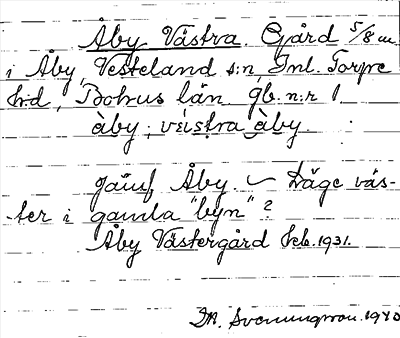 Åby Västra. Gård 5/8 m
i Åby, Vesteland s:n, Inl. Torpe
h:d, Bohus län. Jb. n:r 1.
àby; vèistra àby.
Jämf Åby. – Läge väs-
ter i gamla "byn"?
Åby Västergård Feb. 1931.
Svenungsson. 1940